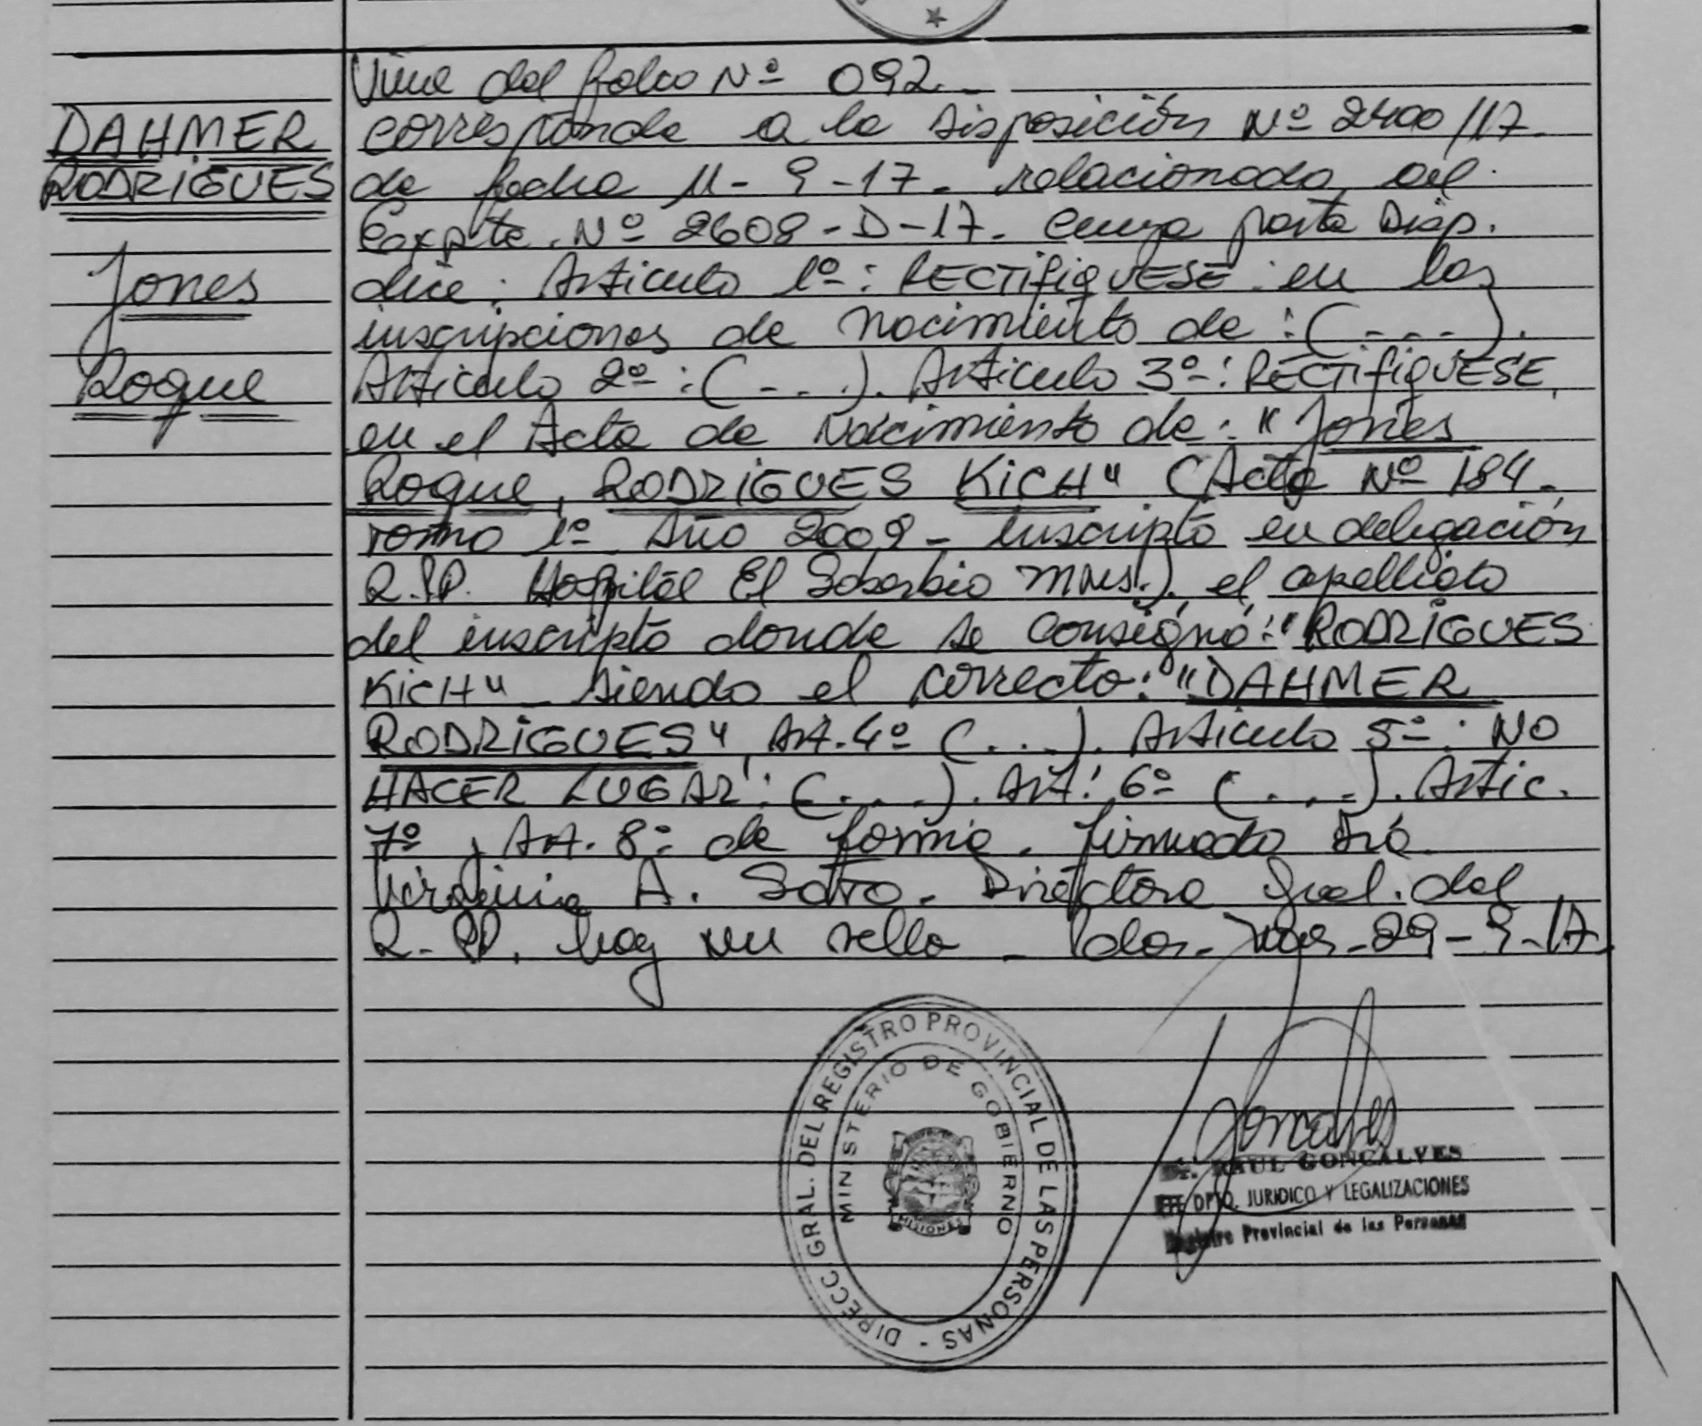 DAHMER
RODRIGUES
Jones
Roque
Viene del folio Nº 092.-
corresponde a la Disposición Nº 2400/17.
de fecha 11-9-17. relacionado al
Expte. Nº 2608-D-17. cuya parte Disp.
dice: Articulo 1º: RECTIFIQUESE: en las
inscripciones de nacimiento de: (....).
Articulo 2º: (....). Articulo 3º: RECTIFIQUESE,
en el Acta de Nacimiento de: "Jones
Roque, RODRIGUES KICH" (Acta Nº 184.
tomo 1º Año 2009 - inscripto en delegación
R.PP. Hospital El Soberbio Mnes.). el apellido
del inscripto donde se consignó: "RODRIGUES
KICH" siendo el correcto: "DAHMER
RODRIGUES" Art. 4º (....). Articulo 5º: NO
HACER LUGAR: (....). Art. 6º (....). Artic.
7º y Art. 8º de forma. firmado Dra.
Virginia A. Soto. Directora Gral. del
R.PP. hay un sello - Pdas. Mnes. 29-9-17
DIRECC. GRAL. DEL REGISTRO PROVINCIAL DE LAS PERSONAS -
MINISTERIO DE GOBIERNO
MISIONES
Dr. RAUL GONCALVES
DPTO. JURIDICO Y LEGALIZACIONES
Registro Provincial de las Personas